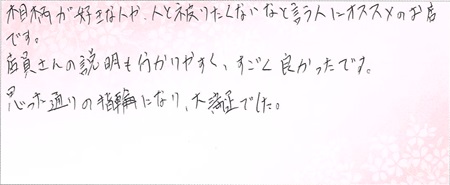 相柄が好きな人や、人と被りたくないなと言う人にオススメのお店
です。
店員さんの説明も分かりやすく、すごく良かったです。
思った通りの指輪になり、大満足でした。